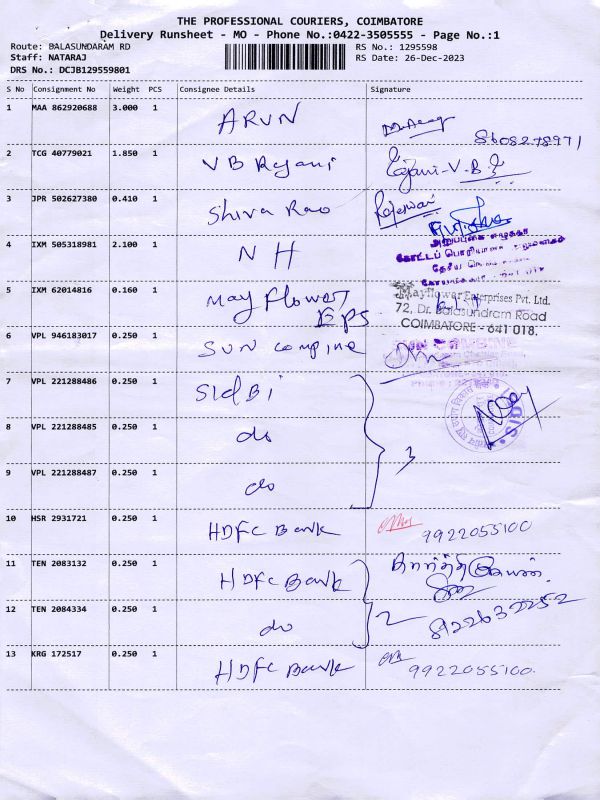 THE PROFESSIONAL COURIERS, COIMBATORE
Delivery Runsheet - MO - Phone No.:0422-3505555 - Page No.:1
Route: BALASUNDARAM RD RS No.: 1295598
Staff: NATARAJ RS Date: 26-Dec-2023
DRS No.: DCJB129559801
S No Consignment No Weight PCS Consignee Details Signature
1 MAA 862920688 3.000 1 ARUN
8608278971
2 TCG 40779021 1.850 1 V B Rejani Rajani-V.B.
3 JPR 502627380 0.410 1 Shiva Rao Rajeswari
4 IXM 505318981 2.100 1 N H
5 IXM 62014816 0.160 1 May flower EPS
Mayflower Enterprises Pvt. Ltd.
72, Dr. Balasundram Road
COIMBATORE - 641 018.
6 VPL 946183017 0.250 1 SUN compine
SUN COMBINE
7 VPL 221288486 0.250 1 SIdBi
8 VPL 221288485 0.250 1 do
3
9 VPL 221288487 0.250 1 do
10 HSR 2931721 0.250 1 HDFC Bank 9922055100
11 TEN 2083132 0.250 1 HDFC Bank
12 TEN 2084334 0.250 1 do 2 8122637252
13 KRG 172517 0.250 1 HDFC Bank 9922055100.